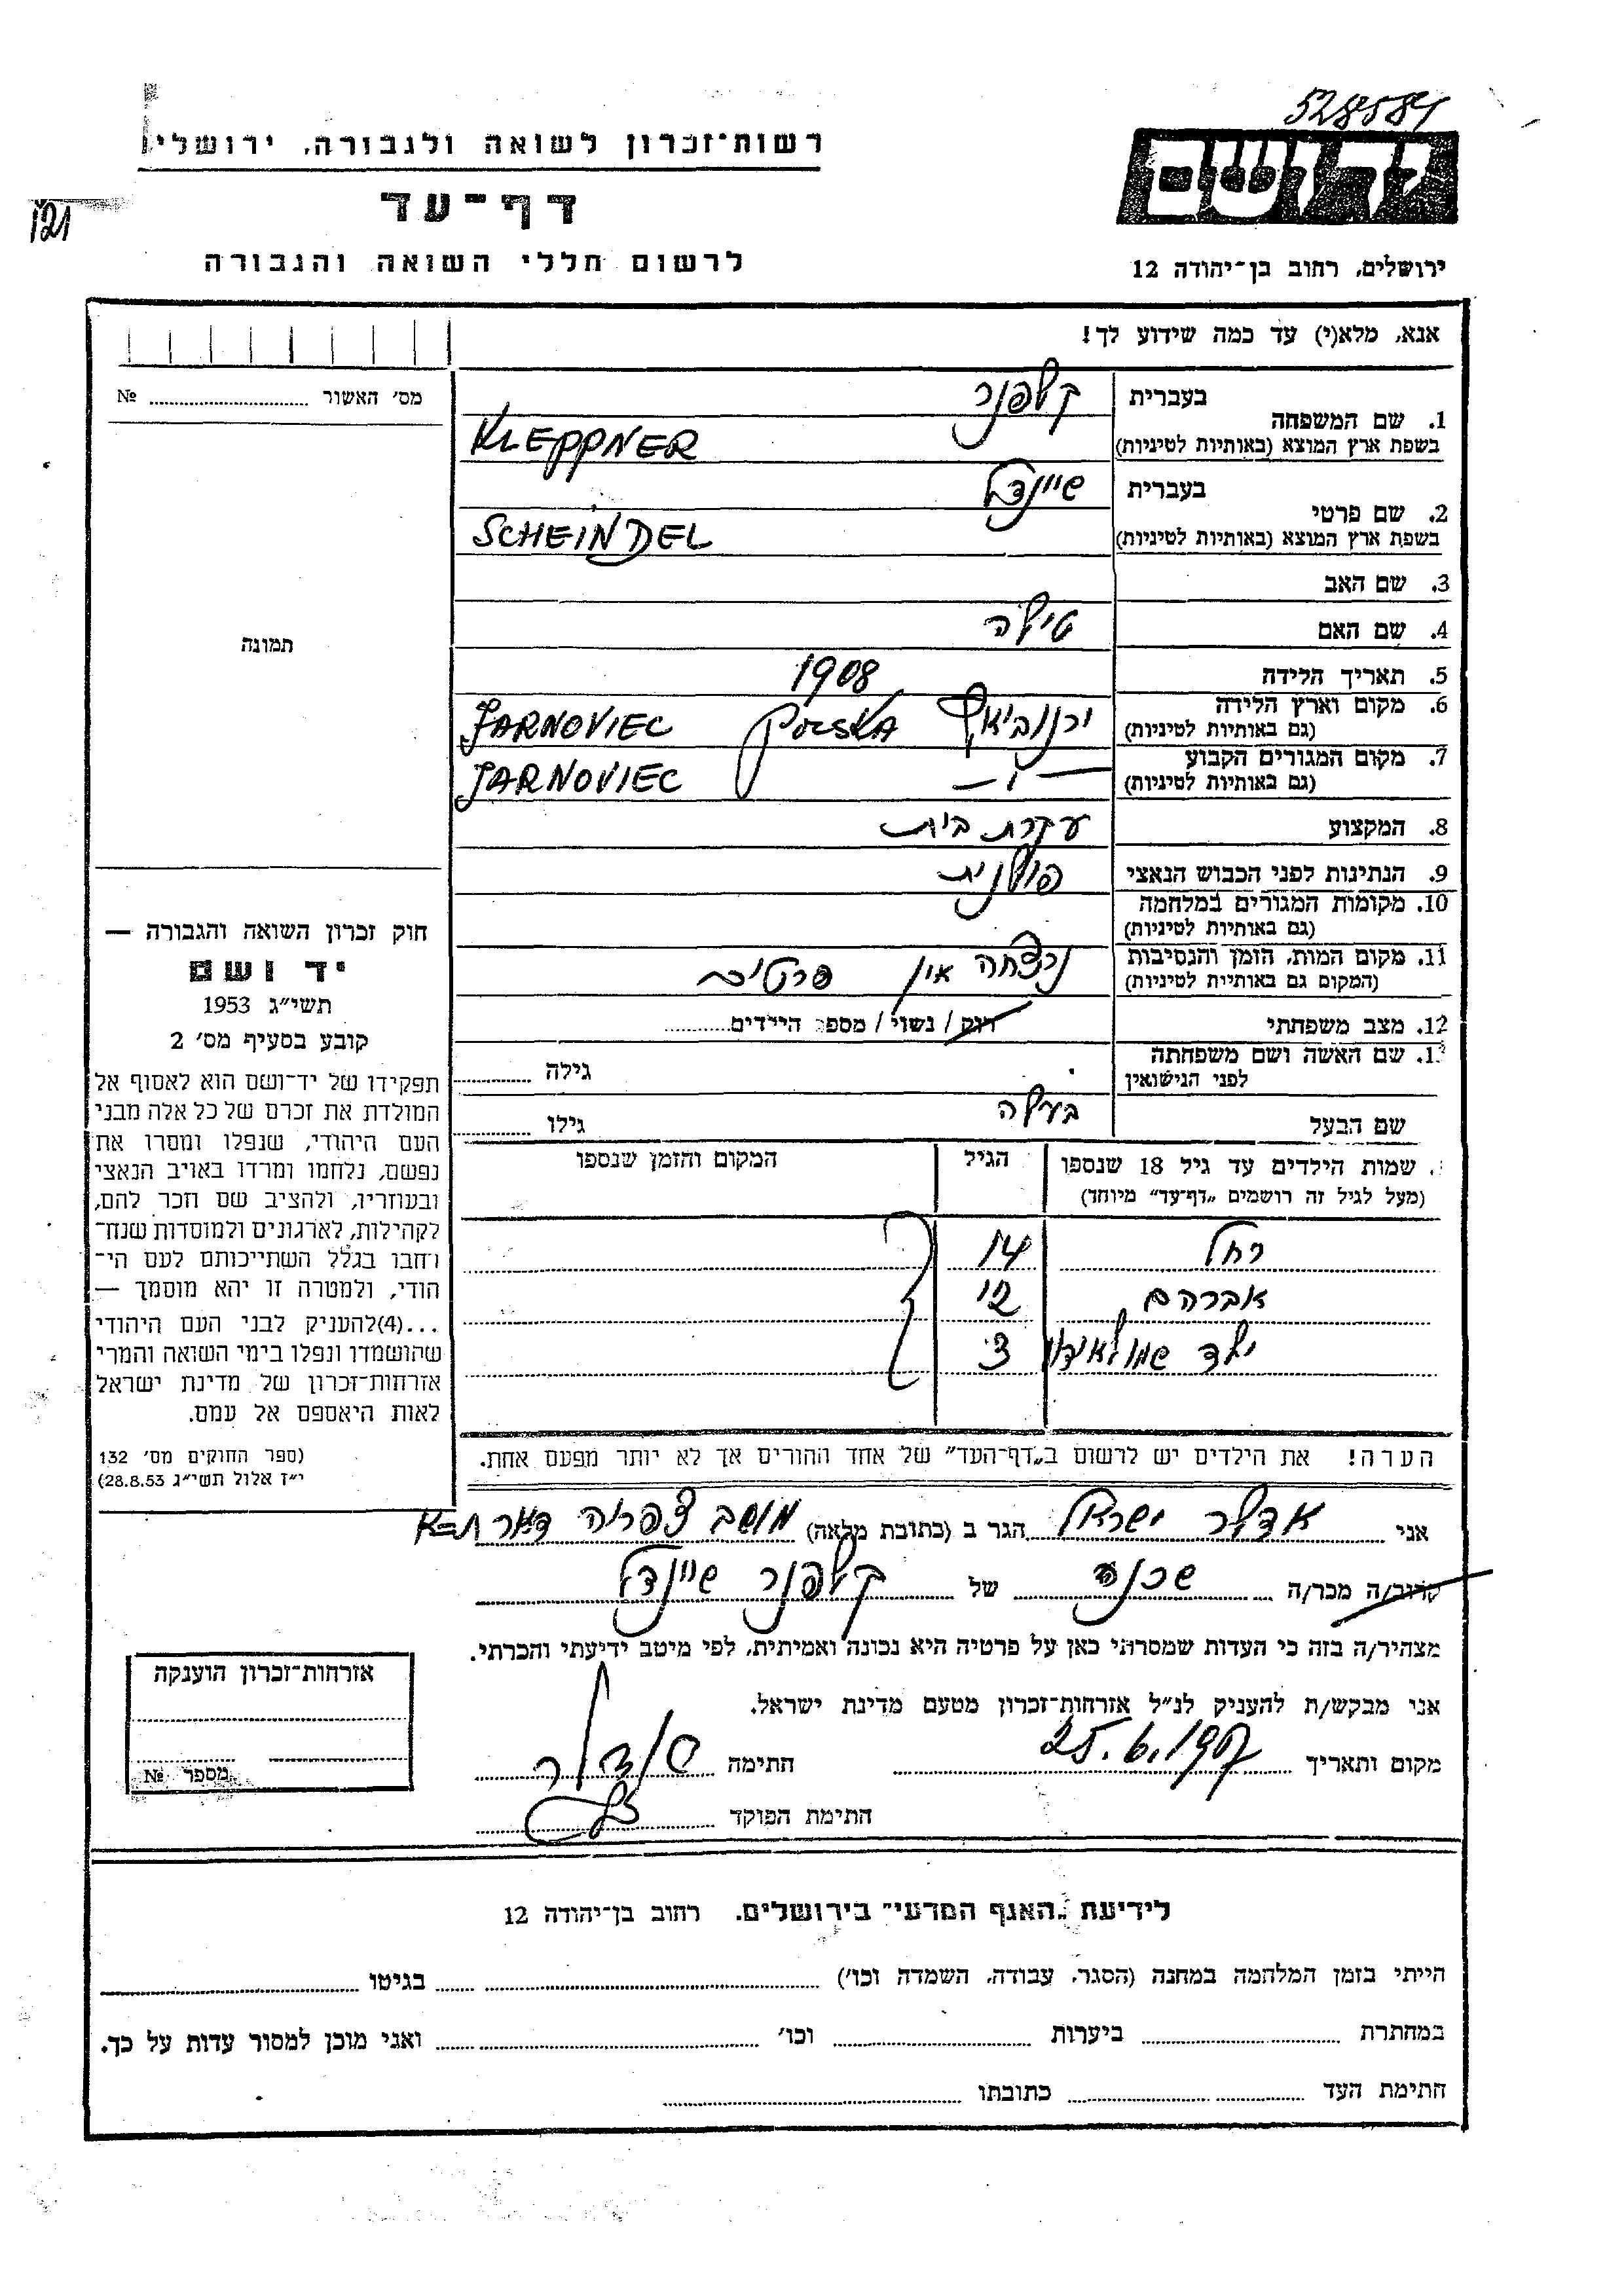 528584
רשות־זכרון לשואה ולגבורה, ירושלים
ידושם
דף־עד
121
לרשום חללי השואה והגבורה
ירושלים, רחוב בן־יהודה 12
אנא, מלא(י) עד כמה שידוע לך!
מס׳ האשור № 
1. שם המשפחה בעברית קלפנר
בשפת ארץ המוצא (באותיות לטיניות) KLEPPNER
2. שם פרטי בעברית שיינדל
בשפת ארץ המוצא (באותיות לטיניות) SCHEINDEL
3. שם האב
4. שם האם טילה
תמונה
5. תאריך הלידה 1908
6. מקום וארץ הלידה (גם באותיות לטיניות) POLSKA JARNOVIEC
7. מקום המגורים הקבוע (גם באותיות לטיניות) — " — JARNOVIEC
8. המקצוע עקרת בית
9. הנתינות לפני הכבוש הנאצי פולנית
10. מקומות המגורים במלחמה (גם באותיות לטיניות)
11. מקום המות, הזמן והנסיבות (המקום גם באותיות לטיניות) נרצחה אין פרטים
12. מצב משפחתי רוק / נשוי / מספר הילדים
שם האשה ושם משפחתה לפני הנישואין גילה
שם הבעל בעלה גילו
שמות הילדים עד גיל 18 שנספו (מעל לגיל זה רושמים „דף־עד” מיוחד) הגיל המקום והזמן שנספו
רחל 14
אברהם 12
ילד 3
חוק זכרון השואה והגבורה —
יד ושם
תשי״ג 1953
קובע בסעיף מס׳ 2
תפקידו של יד־ושם הוא לאסוף אל
המולדת את זכרם של כל אלה מבני
העם היהודי, שנפלו ומסרו את
נפשם, נלחמו ומרדו באויב הנאצי
ובעוזריו, ולהציב שם וזכר להם,
לקהילות, לארגונים ולמוסדות שנח־
רחבו בגלל השתייכותם לעם הי־
הודי, ולמטרה זו יהא מוסמך —
...(4)להעניק לבני העם היהודי
שהושמדו ונפלו בימי השואה והמרי
אזרחות־זכרון של מדינת ישראל
לאות היאספם אל עמם.
(ספר החוקים מס׳ 132
י״ז אלול תשי״ג 28.8.53)
הערה! את הילדים יש לרשום ב„דף־העד” של אחד ההורים אך לא יותר מפעם אחת.
אני אדלר ישראל הגר ב (כתובת מלאה) מושב צפריה דאר ת=א
קרוב/ה מכר/ה שכנה של קלפנר שיינדל
מצהיר/ה בזה כי העדות שמסרתי כאן על פרטיה היא נכונה ואמיתית, לפי מיטב ידיעתי והכרתי.
אני מבקש/ת להעניק לנ״ל אזרחות־זכרון מטעם מדינת ישראל.
מקום ותאריך 25.6.1957 חתימה אדלר
חתימת הפוקד
אזרחות־זכרון הוענקה
מספר №
לידיעת „האגף המדעי” בירושלים. רחוב בן־יהודה 12
הייתי בזמן המלחמה במחנה (הסגר, עבודה, השמדה וכו׳) בגיטו
במחתרת ביערות וכו׳ ואני מוכן למסור עדות על כך.
חתימת העד כתובתו